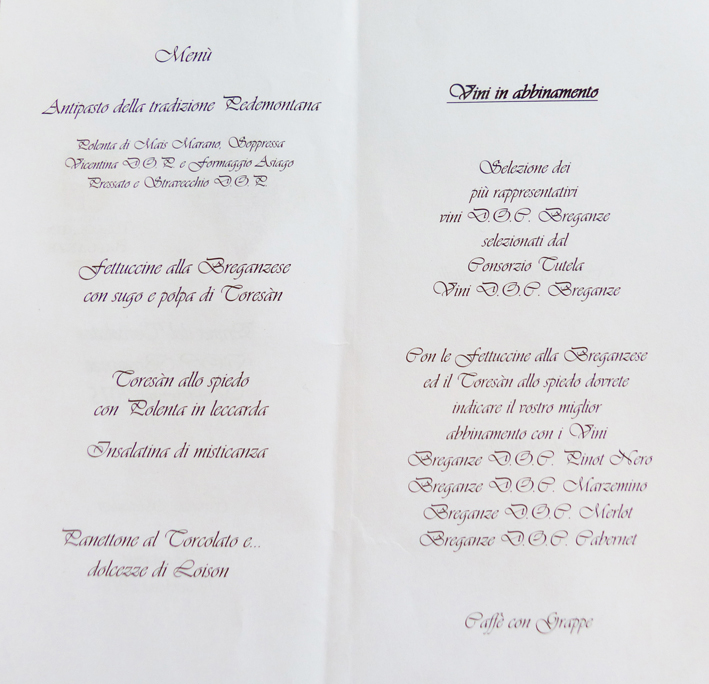 Menù
Antipasto della tradizione Pedemontana
Polenta di Mais Marano, Soppressa
Vicentina D.O.P. e Formaggio Asiago
Pressato e Stravecchio D.O.P.
Fettuccine alla Breganzese
con sugo e polpa di Toresàn
Toresàn allo spiedo
con Polenta in leccarda
Insalatina di misticanza
Panettone al Torcolato e...
dolcezze di Loison
Vini in abbinamento
Selezione dei
più rappresentativi
vini D.O.C. Breganze
selezionati dal
Consorzio Tutela
Vini D.O.C. Breganze
Con le Fettuccine alla Breganzese
ed il Toresàn allo spiedo dovrete
indicare il vostro miglior
abbinamento con i Vini
Breganze D.O.C. Pinot Nero
Breganze D.O.C. Marzemino
Breganze D.O.C. Merlot
Breganze D.O.C. Cabernet
Caffè con Grappe